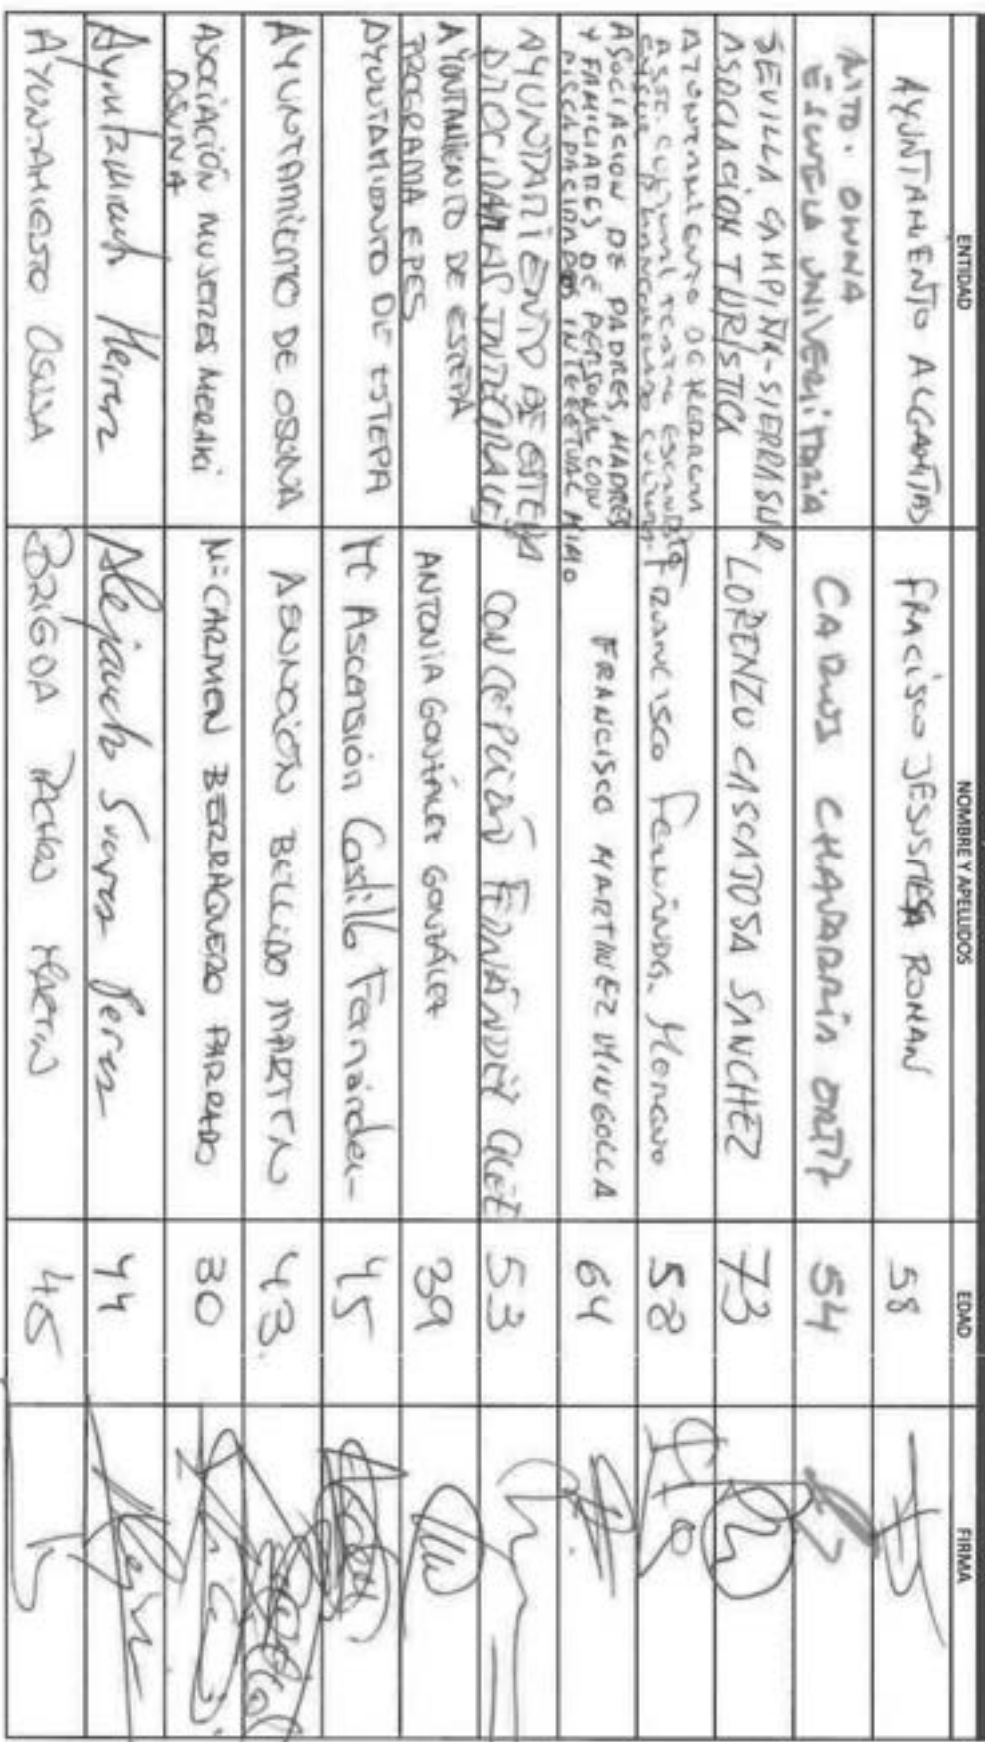 ENTIDAD NOMBRE Y APELLIDOS EDAD FIRMA
AYUNTAMIENTO ALGÁMITAS FRACISCO JESUS MESA ROMAN 58
ESCUELA UNIVERSITARIA
OSUNA CARLOS CHAVARRÍA ORTIZ 54
SEVILLA CAMPIÑA-SIERRA SUR
ASOCIACIÓN TURÍSTICA LORENZO CASCAJOSA SANCHEZ 73
AYUNTAMIENTO DE HERRERA
ASOC. CULTURAL TEATRO
FRANCISCO Fernández Moreno 58
ASOCIACION DE PADRES, MADRES
Y FAMILIARES DE PERSONAS CON
DISCAPACIDAD INTELECTUAL MIMO FRANCISCO MARTINEZ MINGOLLA 64
AYUNTAMIENTO DE ESTEPA
CONCEPCIÓN FERNÁNDEZ 53
AYUNTAMIENTO DE ESTEPA
PROGRAMA EPES ANTONIA GONZÁLEZ GONZÁLEZ 39
AYUNTAMIENTO DE ESTEPA Mª Ascensión Castillo Fernández 45
AYUNTAMIENTO DE OSUNA ASUNCIÓN BELLIDO MARTÍN 43.
ASOCIACIÓN MUJERES MERAKI
OSUNA Mª CARMEN BERRAQUERO PARRADO 30
Ayuntamiento Herrera Alejandro Suarez Perez 44
AYUNTAMIENTO BRIGIDA MARTIN 45